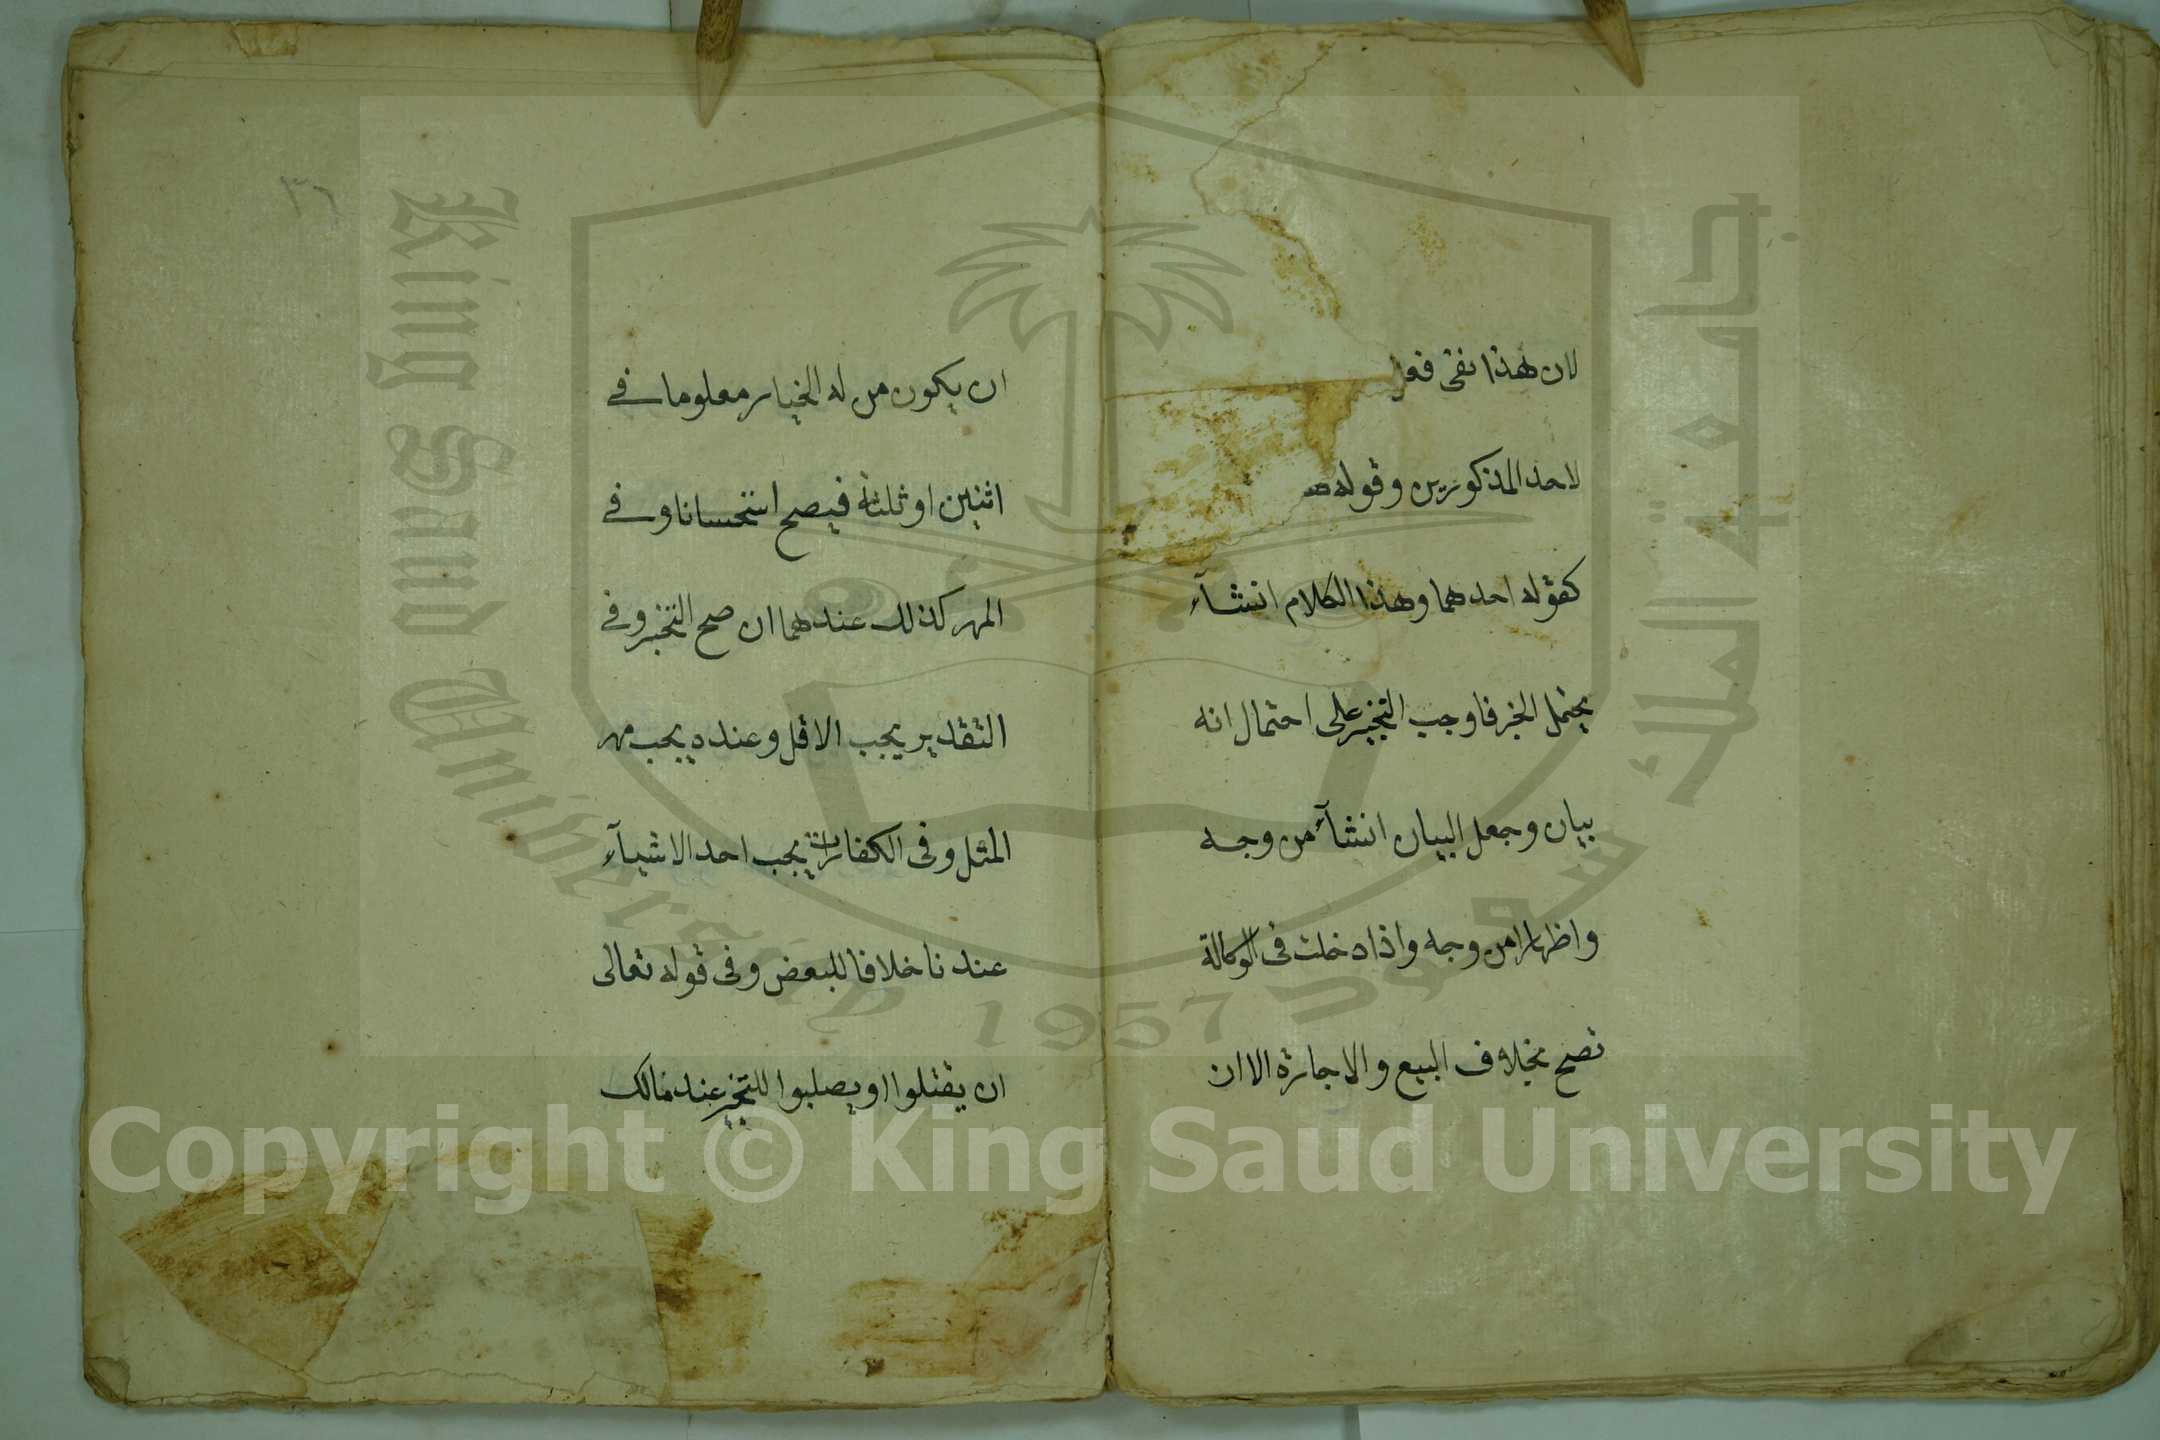 لان هذا نفى فعل
لاحد المذكورين وقوله هذ
كقوله احدهما وهذا الكلام انشآء
يحتمل الخبر فاوجب التخيير على احتمال انه
بيان وجعل البيان انشآء من وجه
واظهارا من وجه واذا دخلت فى الوكالة
تصح بخلاف البيع والاجارة الا ان
٣٦
ان يكون من له الخيار معلوما فے
اثنين او ثلثة فيصح استحسانا وفے
المهر كذلك عندهما ان صح التخير وفے
التقدير يجب الاقل وعنده يجب مهر
المثل وفى الكفارات يجب احد الاشيآء
عندنا خلافا للبعض وفى قوله تعالى
ان يقتلوا او يصلبوا للتخير عند مالك
جامعة الملك سعود
King Saud University
1957
Copyright © King Saud University